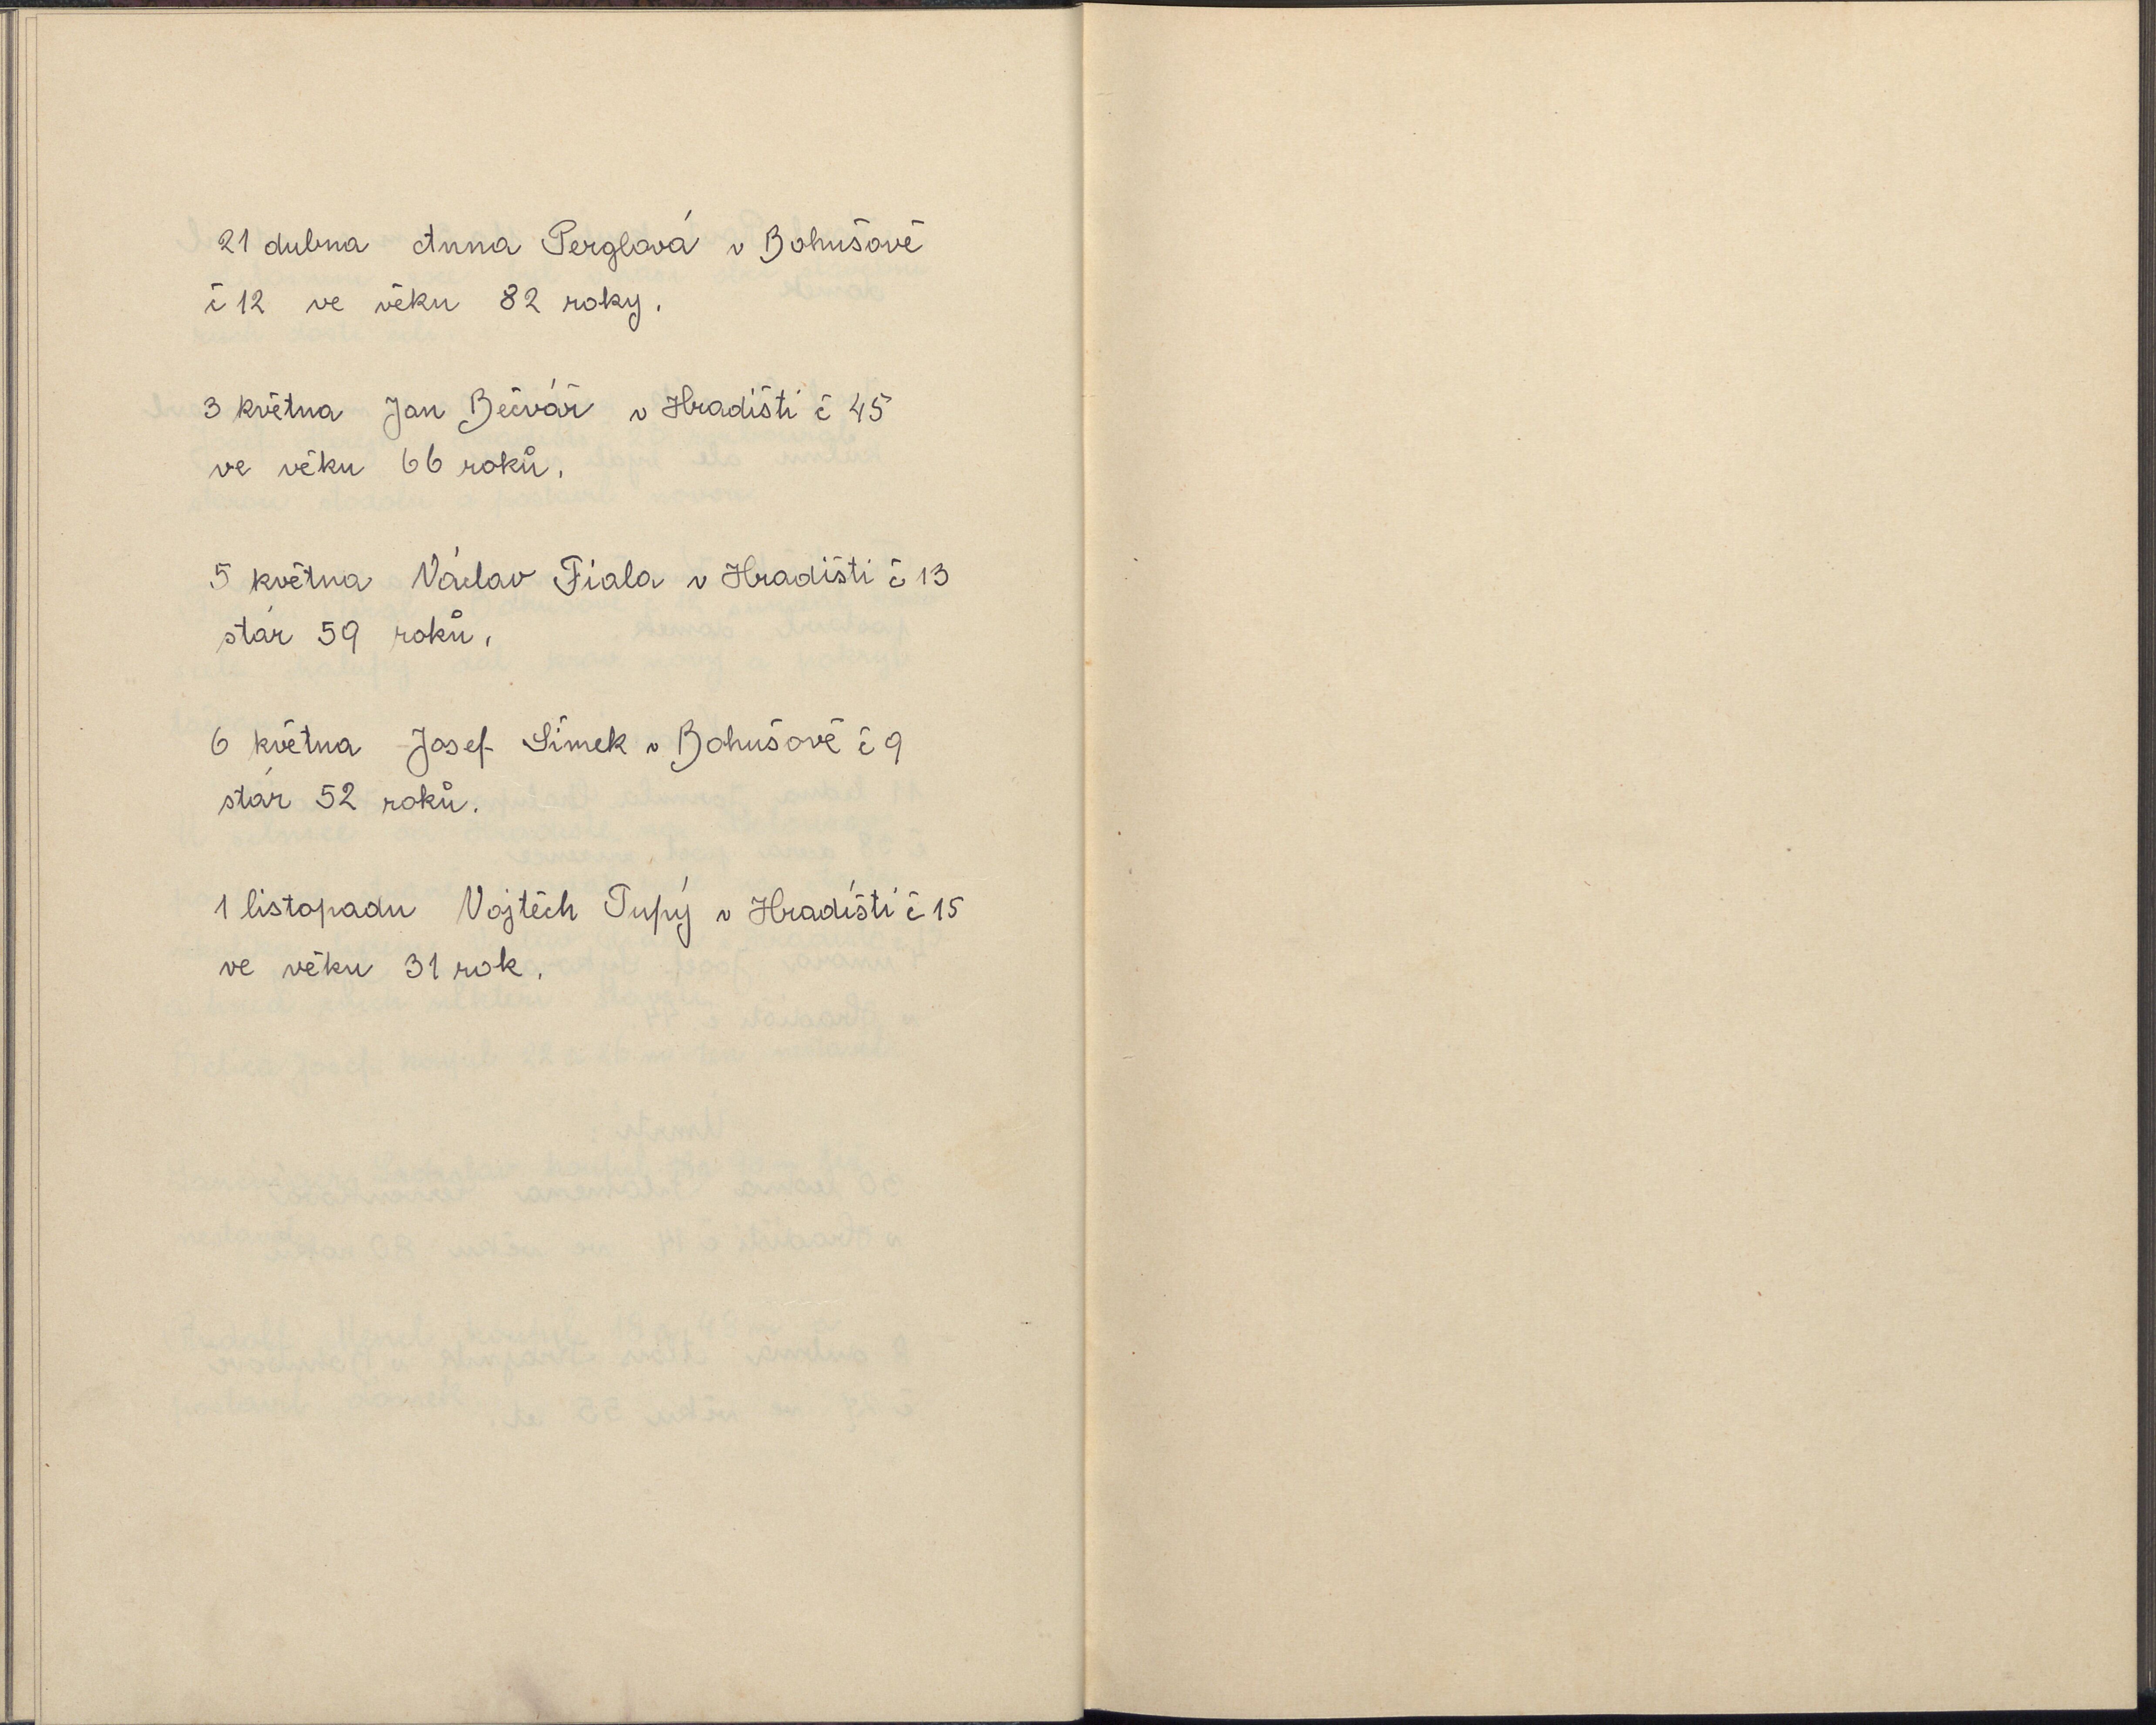 21 dubna Anna Perglová v Bohušově
č 12 ve věku 82 roky.
3 května Jan Bečvář v Hradišti č 45
ve věku 66 roků.
5 května Václav Fiala v Hradišti č 13
stár 59 roků.
6 května Josef Šimek v Bohušově č 9
stár 52 roků.
1 listopadu Vojtěch Tupý v Hradišti č 15
ve věku 31 rok.